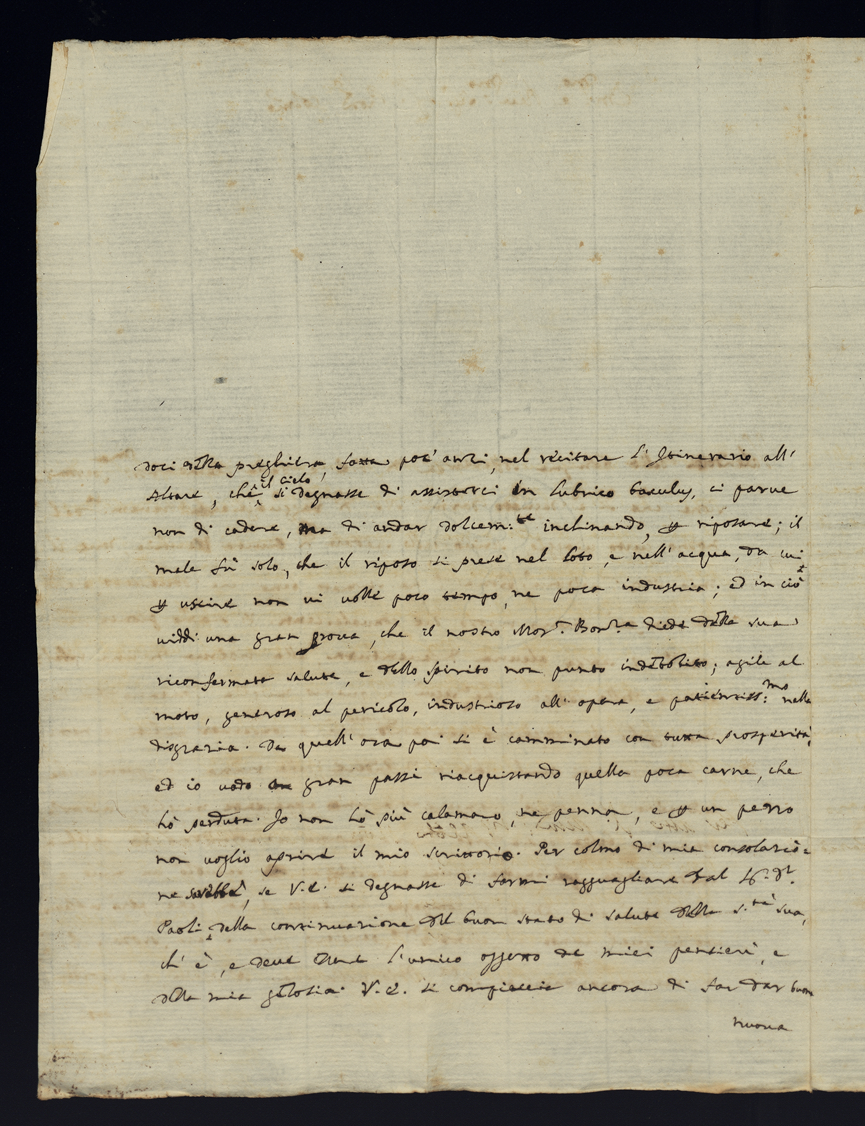 doci della preghiera, fatta poc' anzi, nel recitare l' Itinerario all'
Altare, che il Cielo si degnasse di assisterci in lubrico baculus, ci parve
non di cadere, ma di andar dolcem:te inchinando, e riposare; il
male fù solo, che il riposo si prese nel loto, e nell' acqua, da cui
uscire non vi volle poco tempo, ne poca industria; ed in ciò
viddi una gran prova, che il nostro Mons.r Bon:ra diede della sua
riconfermata salute, e dello spirito non punto indebolito; agile al
moto, generoso al pericolo, industrioso all' opera, e patientiss:mo nella
disgrazia. Da quell' ora poi si è camminato con tutta prosperità,
ed io vado a gran passi riacquistando quella poca carne, che
hò perduta. Io non hò più calamaro, ne penna, e un pezzo
non voglio aprire il mio scrittorio. Per colmo di mia consolazio=
ne sarebbe, se V.E. si degnasse di farmi ragguagliare dal
Paoli della continuazione del buon stato di salute della S.tà sua,
ch' è, e deve essere l' unico oggetto de miei pensieri, e
della mia gelosia. V.E. si compiaccia ancora di far dar buon
nuova